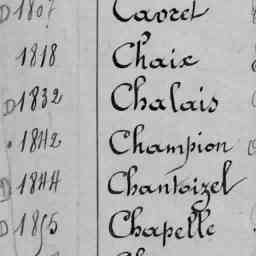 D 1807 Cavret
1818 Chaix
D 1832 Chalais
1842 Champion
D 1844 Chantoizel
D 1855 Chapelle